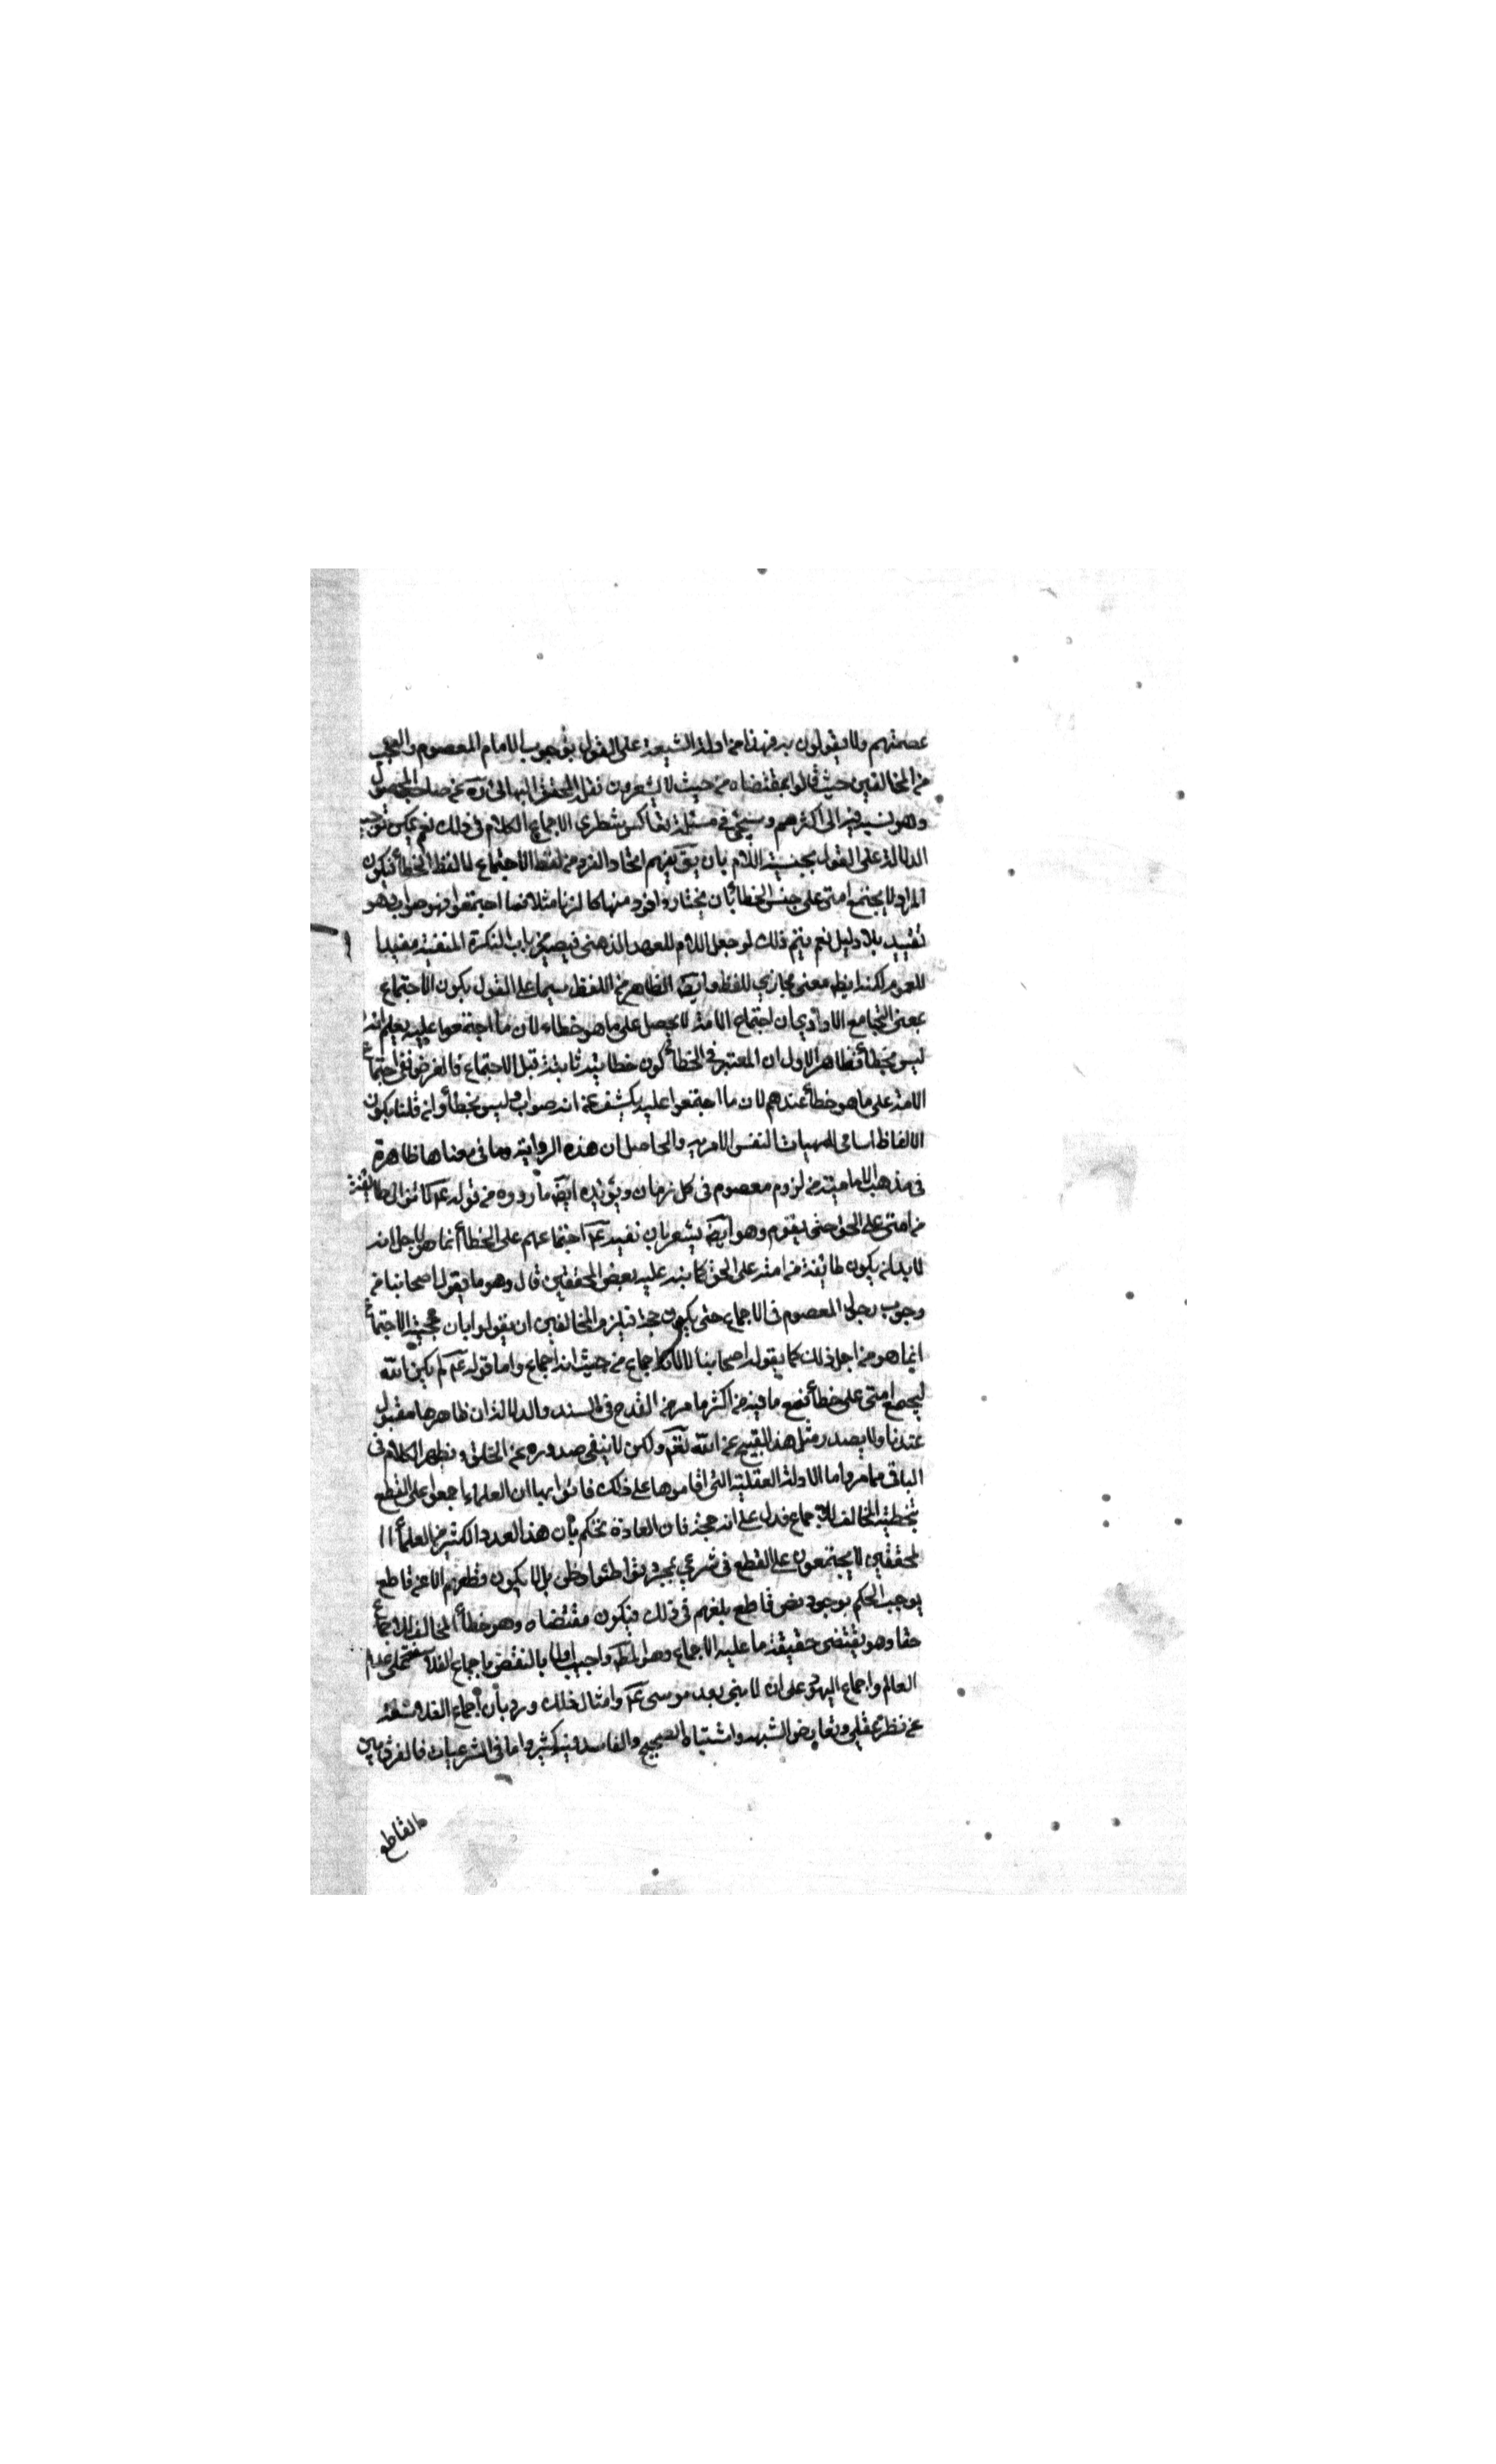 عصمتهم ولا يقولون به فهذا من ادلة الشيعة على القول بوجوب الامام المعصوم والعجب
من المخالفين حيث قالوا بمقتضاه من حيث لا يشعرون نقل المحقق البهائى ره عن صاحب المحصول
وهو نسبه فيه الى اكثرهم وسيجئ فى مسئلة تعاكس شطرى الاجماع الكلام فى ذلك نعم يمكن توجيه
الدلالة على القول بجنسية اللام بان يق يفهم اتحاد الفرد من لفظ الاجتماع لا لفظ الخطأ فيكون
المراد لا يجتمع امتى على جنس الخطأ بان يختاروا فردا منها كالزنا مثلا فما اجتمعوا فهو صواب وهو
تقييد بلا دليل نعم يتم ذلك لو جعل اللام للعهد الذهنى فيصير من باب النكرة المنفية مفيدا
للعموم لكنه ايضا معنى مجازى للفظ وايضا الظاهر من اللفظ سيما على القول بكون الاجتماع
بمعنى التجامع الاوادى ان اجتماع الامة لا يحصل على ما هو خطاء لان ما اجتمعوا عليه يعلم انه
ليس بخطأ فظاهر الاول ان المعتبر فى الخطأ كون خطائيته ثابتة قبل الاجتماع فالغرض نفى اجتماع
الامة على ما هو خطأ عندهم لان ما اجتمعوا عليه يكشف عن انه صواب وليس بخطأ وان قلنا بكون
الالفاظ اسامى للمهيات النفس الامرية والحاصل ان هذه الرواية وما فى معناها ظاهرة
فى مذهب الامامية من لزوم معصوم فى كل زمان ويؤيده ايضا ما رووه من قوله عم لا تزال طائفة
من امتى على الحق حتى يقوم وهو ايضا يشعر بان نفيه عم اجتماعهم على الخطأ انما هو لاجل انه
لا بد ان يكون طايفة من امته على الحق كما نبه عليه بعض المحققين قال وهو ما يقول اصحابنا من
وجوب دخول المعصوم فى الاجماع حتى يكون حجة فيلزم المخالفين ان يقولوا بان حجية الاجتماع
انما هو من اجل ذلك كما يقوله اصحابنا لا لانه اجماع من حيث انه اجماع واما قوله عم لم يكن الله
ليجمع امتى على خطأ فمع ما فيه من اكثر ما مر من القدح فى السند والدلالة ان ظاهرها مقبول
عندنا ولا يصدر مثل هذا القبيح عن الله تعم ولكن لا ينفى صدوره عن الخلق ويظهر الكلام فى
الباقى مما مر واما الادلة العقلية التى اقاموها على ذلك فاقواها ان العلماء اجمعوا على القطع
بتخطية المخالف للاجماع فدل على انه حجة فان العادة تحكم بان هذا العدد الكثير من العلماء ا
لمحققين لا يجتمعون على القطع فى شرعى بمجرد تواطئوا وظن بل لا يكون قطعهم الا عن قاطع
يوجب الحكم بوجود نص قاطع بلغهم فى ذلك فيكون مقتضاه وهو خطأ المخالف للاجماع
حقا وهو يقتضى حقيقة ما عليه الاجماع وهو المط واجيب اولا بالنقض باجماع الفلاسفة على قدم
العالم واجماع اليهود على ان لا نبى بعد موسى عم وامثال ذلك ورد بأن اجماع الفلاسفة
عن نظر عقلى وتعارض الشبه واشتباه الصحيح والفاسد فيه كثير واما فى الشرعيات فالفرق بين
القاطع